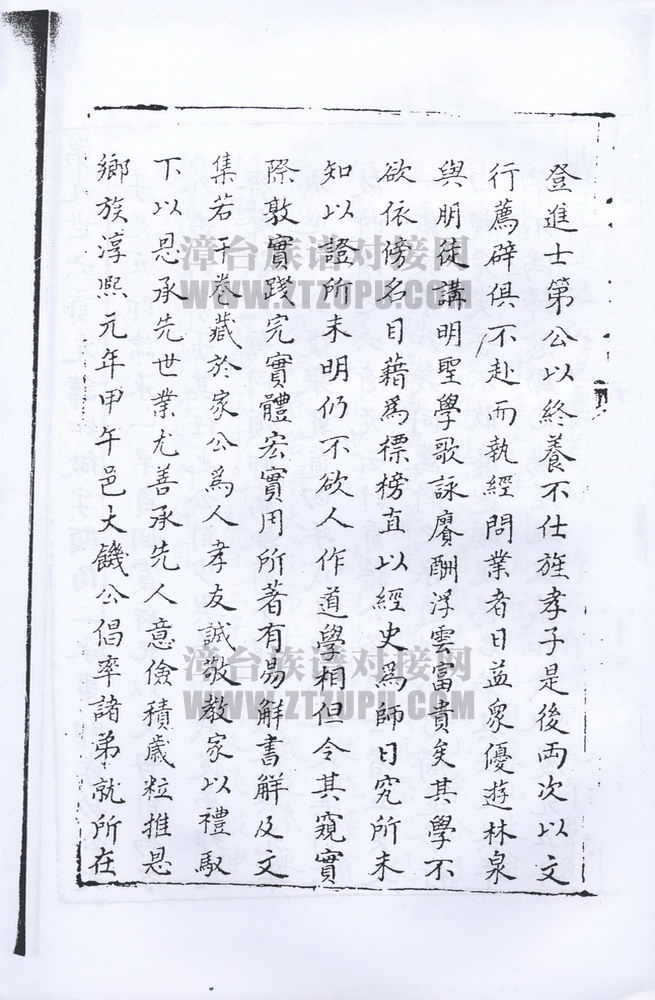 登進士第公以終養不仕旌孝子是後両次以文
行薦辟俱不赴而執經問業者日益衆優遊林泉
與朋徒講明聖學歌詠賡酬浮雲富貴矣其學不
欲依傍名目藉為標榜直以經史為師日究所未
知以證所未明仍不欲人作道學相但令其窺實
際敦實踐完實體宏實用所著有易解書解及文
集若干卷藏於家公為人孝友誠敬教家以禮馭
下以恩承先世業尤善承先人意儉積歲粒推恩
鄉族淳熙元年甲午邑大饑公倡率諸弟就所在
漳台族谱对接网
WWW.ZTZUPU.COM
漳台族谱对接网
WWW.ZTZUPU.COM